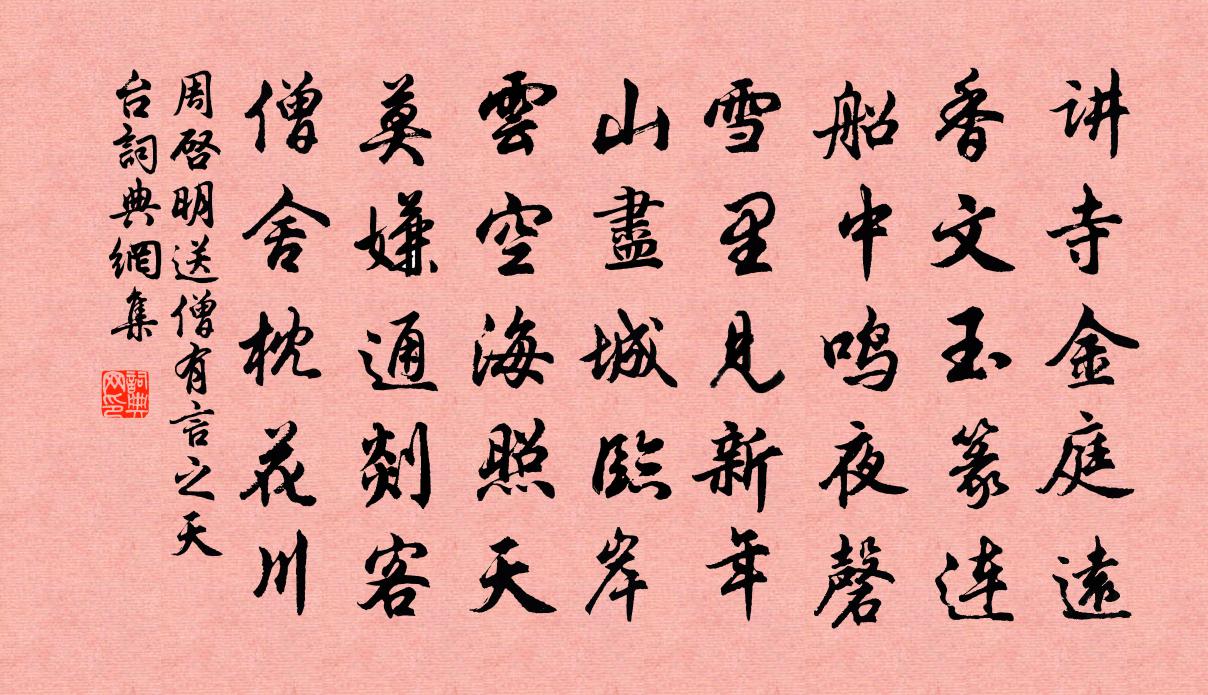 讲寺金庭遠
香文玉篆連
船中鸣夜磬
雪里見新年
山盡城臨岸
雲空海照天
莫嫌通剡客
僧舍枕花川
周啓明送僧有言之天
台詞典網集
詞典
网印